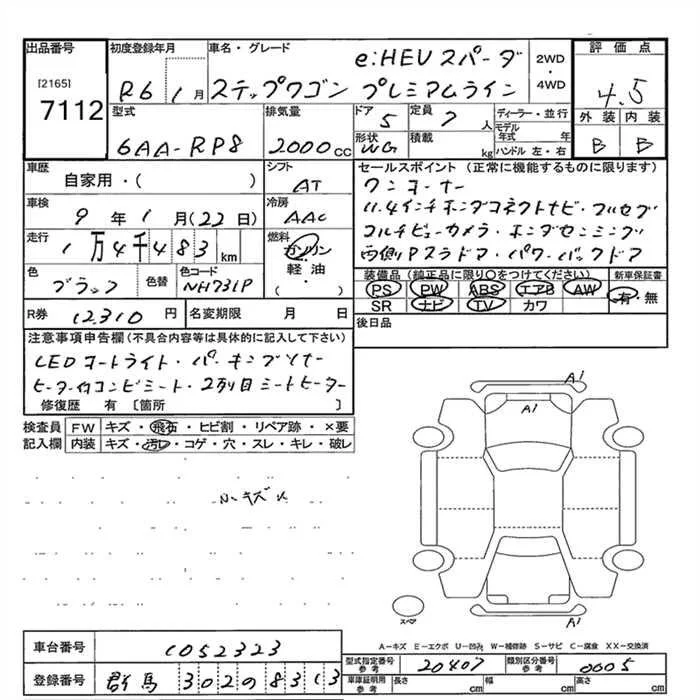 出品番号
[2165]
7112
初度登録年月
R6 1月
車名・グレード
e:HEV スパーダ
ステップワゴン プレミアムライン
2WD・4WD
評価点
4.5
外装 内装
B B
型式
6AA-RP8
排気量
2000cc
ドア
5
定員
7人
形状
WG
積載
kg
ディーラー・並行
モデル年式 年
ハンドル 左・右
車歴
自家用・( )
シフト
AT
車検
9年1月(22日)
冷房
AAC
走行
1万4千483km
燃料
ガソリン
軽油・
( )
色
ブラック
色替
色コード
NH731P
R券
12310円
名変期限 月 日
セールスポイント(正常に機能するものに限ります)
ワンオーナー
11.4インチホンダコネクトナビ・フルセグ
マルチビューカメラ・ホンダセンシング
両側Pスラドア・パワーバックドア
装備品(純正品に限り○をつけてください)
PS PW ABS エアB AW
SR ナビ TV カワ
新車保証書
有・無
後日品
注意事項申告欄(不具合内容等は具体的に記入して下さい)
LEDオートライト・パーキングソナー
ヒーター付コンビシート・2列目シートヒーター
修復歴 有 [箇所 ]
検査員記入欄
FW キズ・飛石・ヒビ割・リペア跡・×要
内装 キズ・汚レ・コゲ・穴・スレ・キレ・破レ
小キズ
A1
A1
A1
スペア
A-キズ E-エクボ U-凹み W-補修跡 S-サビ C-腐食 XX-交換済
車台番号
1052323
登録番号
群馬 302 の 8313
型式指定番号 参考
20407
類別区分番号 参考
0005
車庫証明用 参考
長さ cm 幅 cm 高さ cm